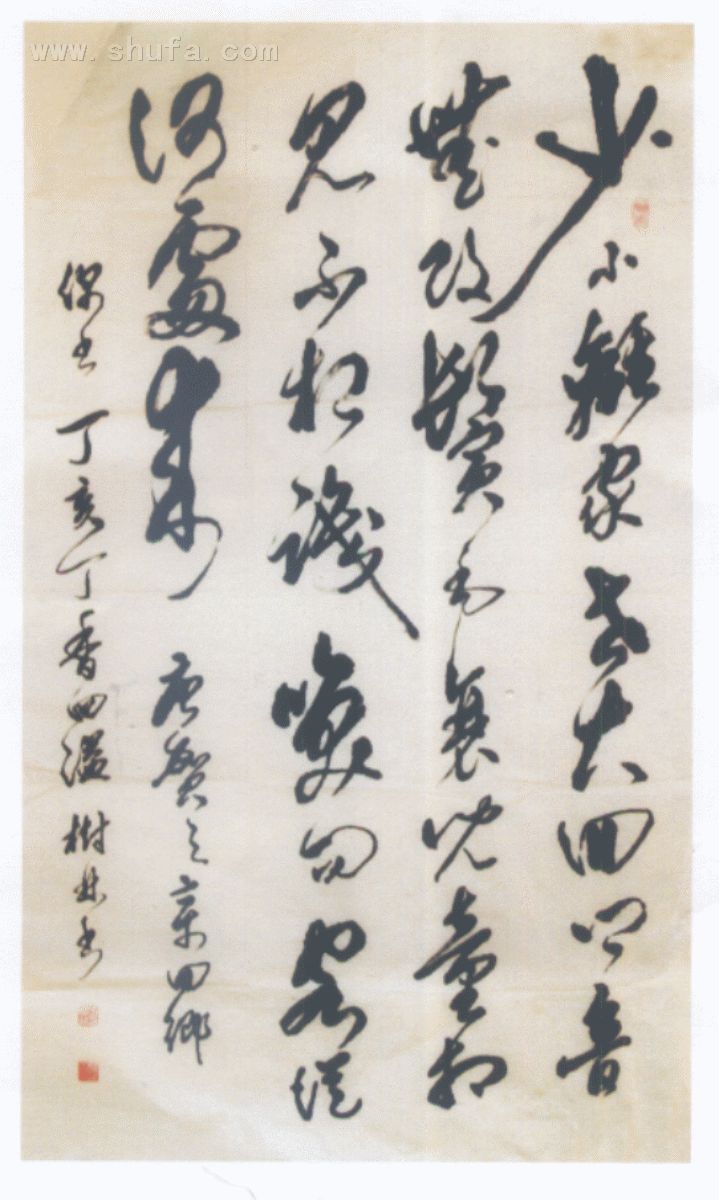 www.shufa.com
少小離家老大回鄉音
無改鬢毛衰兒童相
見不相識咲問客從
何處來 唐賀之章回鄉
偶書 丁亥丁香四溢樹林書